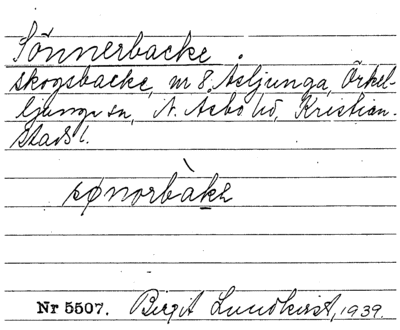 Sönnerbacke.
skogsbacke, nr 8. Åsljunga, Örkel-
ljunga sn, N. Åsbo hd, Kristian-
stads l.
sønorbàkɛ
Nr 5507. Birgit Lundkvist, 1939.